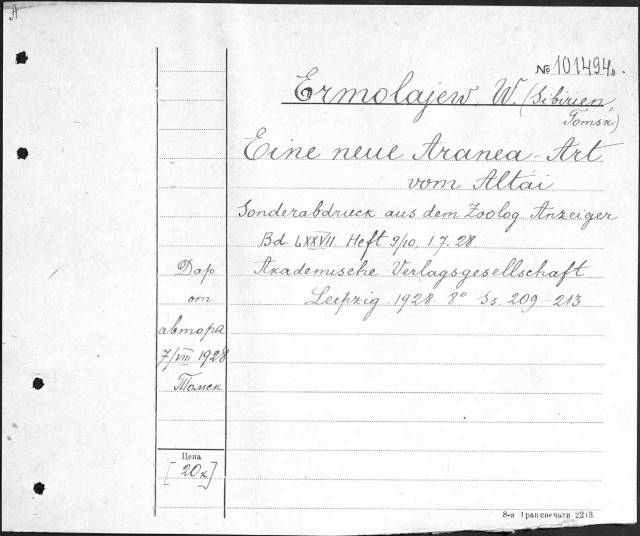 A
№ 101494
Ermolajew W. (Sibirien,
Tomsk)
Eine neue Aranea-Art
vom Altai
Sonderabdruck aus dem Zoolog. Anzeiger
Bd LXXVII Heft 9/10. 1 7. 28.
Akademische Verlagsgesellschaft
Leipzig. 1928. 8° Ss. 209-213
Дар
от
автора
7/VIII 1928
Томск
Цена
[20к]
8-я Транспечати 2213.